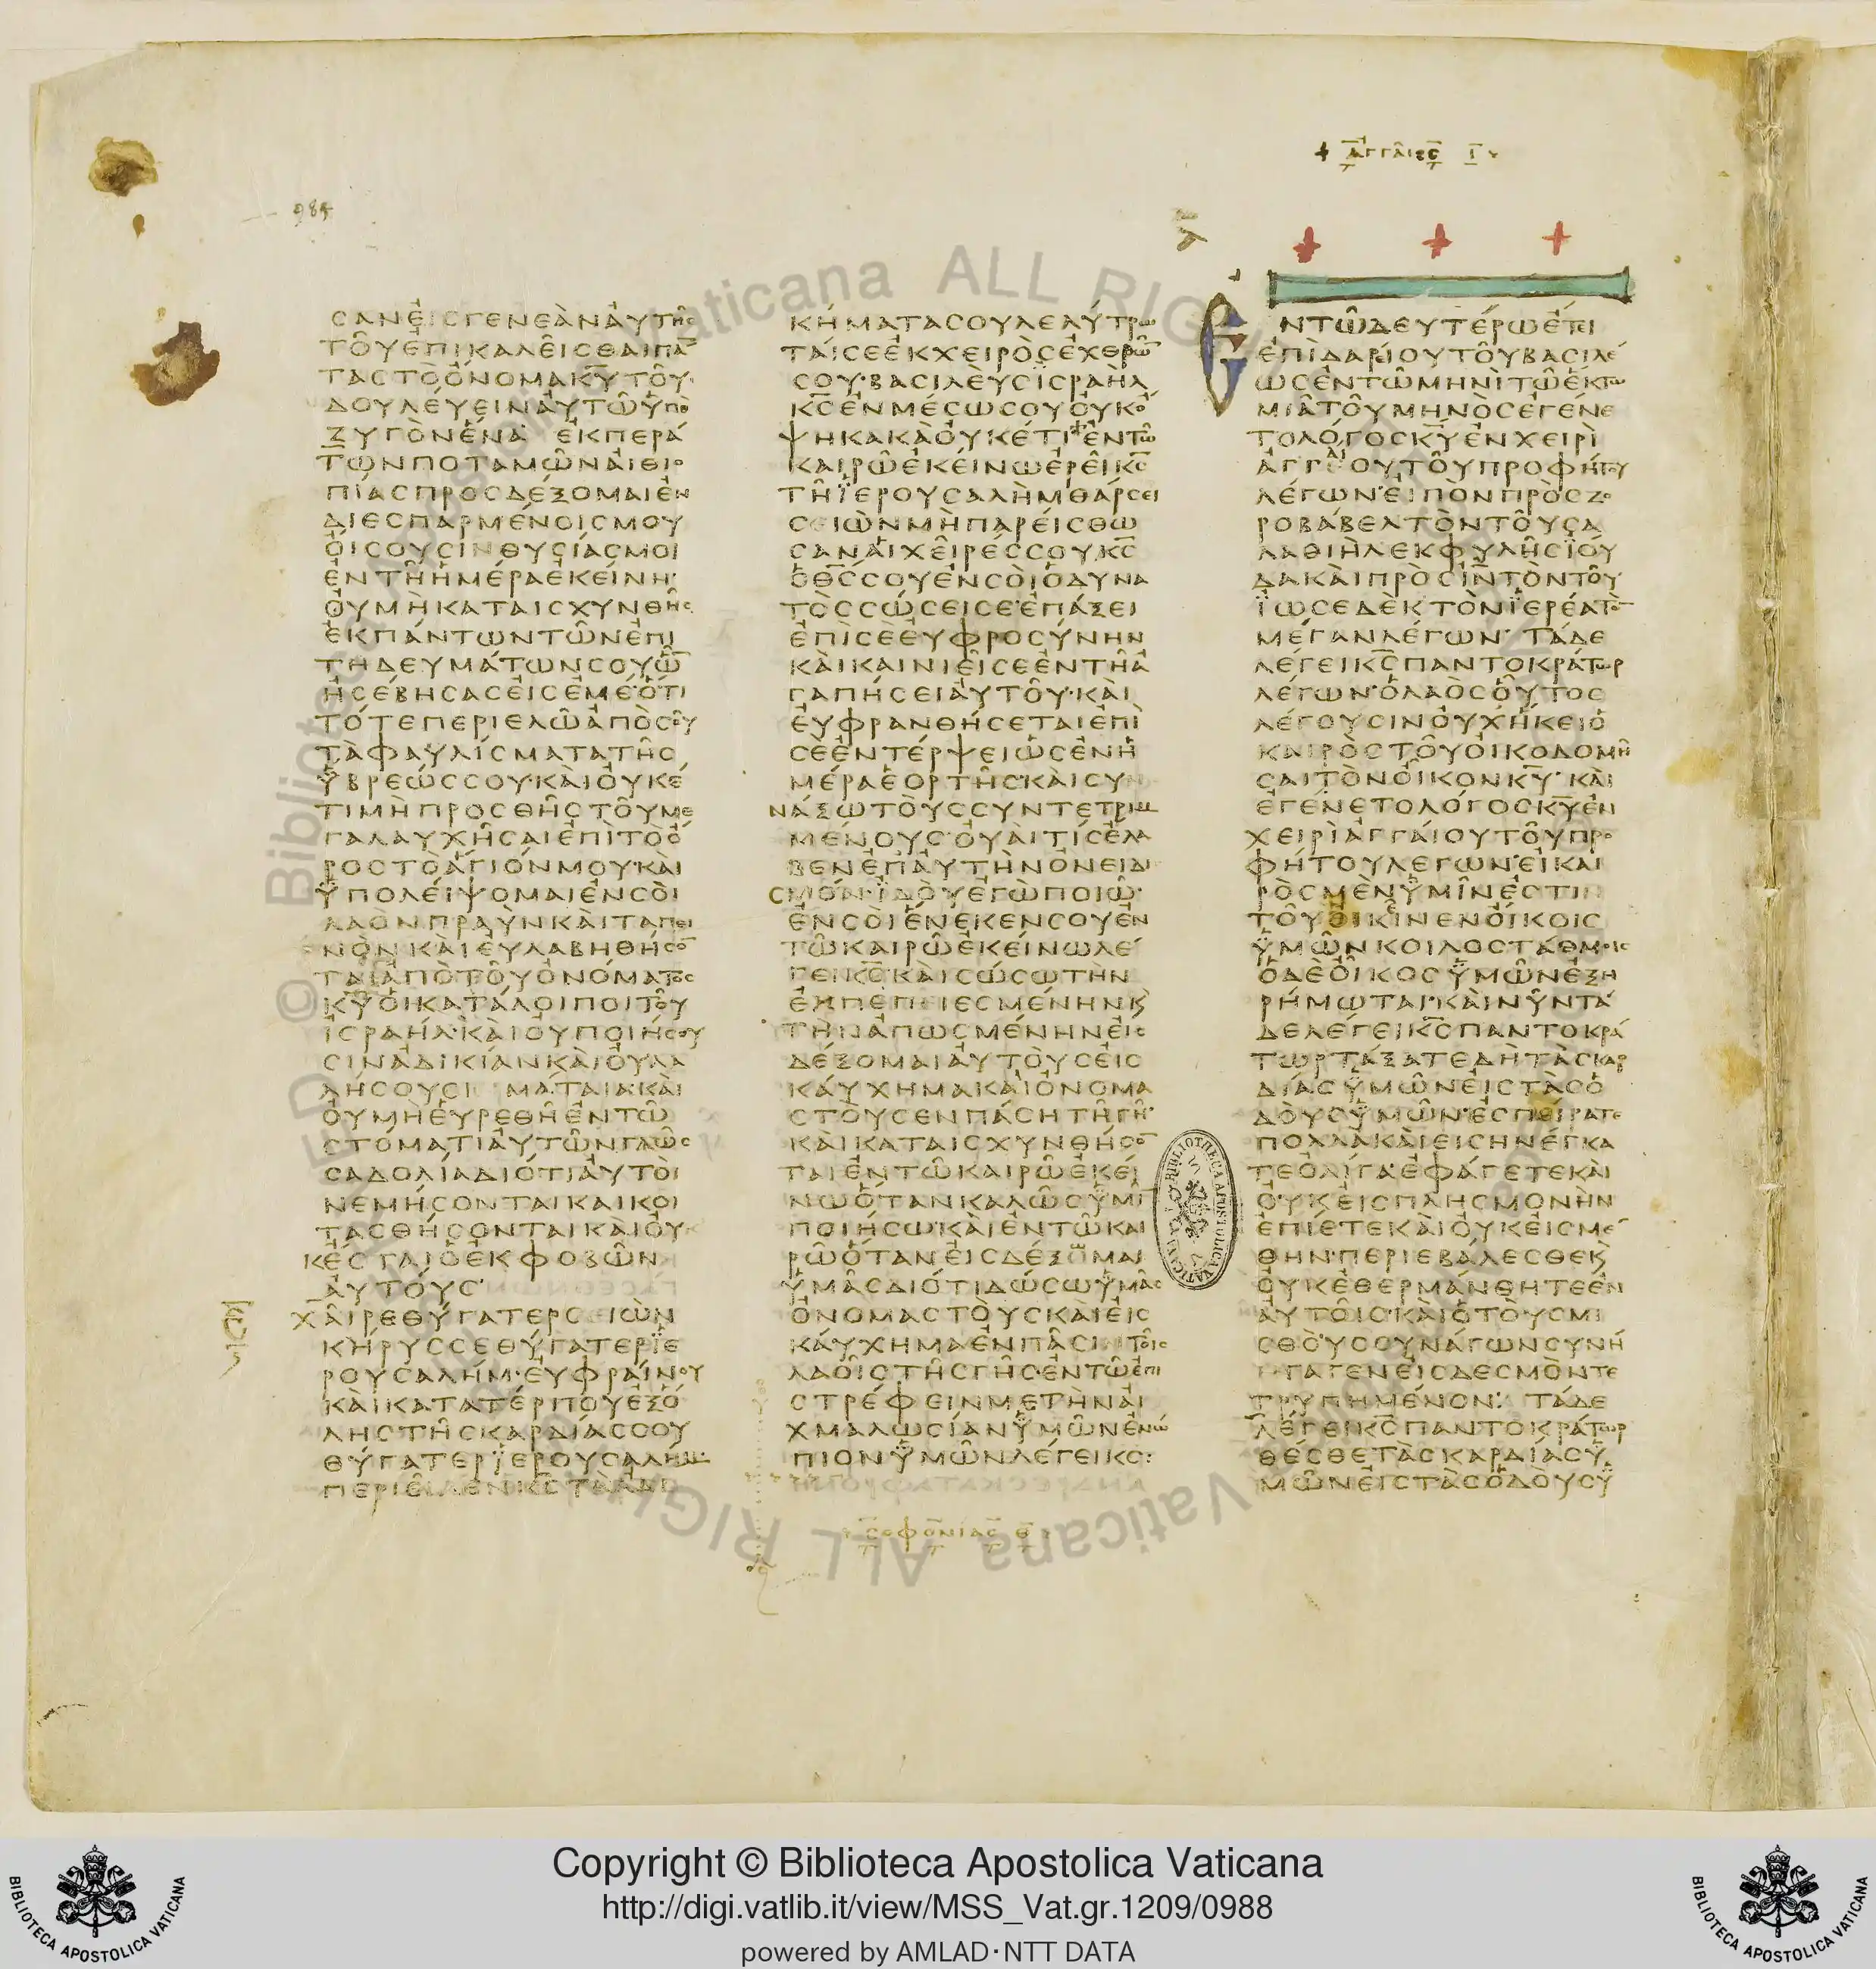 + ΑΓΓΑΙΟϹ Ι
984
ϹΑΝΕΙϹΓΕΝΕΑΝΑΥΤΗϹ
ΤΟΥΕΠΙΚΑΛΕΙϹΘΑΙΠΑ̅
ΤΑϹΤΟΟΝΟΜΑΚ̅Υ̅ΤΟΥ
ΔΟΥΛΕΥΕΙΝΑΥΤΩΫΠΟ
ΖΥΓΟΝΕΝΑ ΕΚΠΕΡΑ
ΤΩΝΠΟΤΑΜΩΝΑΙΘΙΟ
ΠΙΑϹΠΡΟϹΔΕΞΟΜΑΙΕΝ
ΔΙΕϹΠΑΡΜΕΝΟΙϹΜΟΥ
ΟΙϹΟΥϹΙΝΘΥϹΙΑϹΜΟΙ
ΕΝΤΗΗΜΕΡΑΕΚΕΙΝΗ·
ΟΥΜΗΚΑΤΑΙϹΧΥΝΘΗϹ
ΕΚΠΑΝΤΩΝΤΩΝΕΠΙ
ΤΗΔΕΥΜΑΤΩΝϹΟΥΩ̅
ΗϹΕΒΗϹΑϹΕΙϹΕΜΕ·ΟΤΙ
ΤΟΤΕΠΕΡΙΕΛΩΑΠΟϹΟΥ
ΤΑΦΑΥΛΙϹΜΑΤΑΤΗϹ
ΫΒΡΕΩϹϹΟΥ·ΚΑΙΟΥΚΕ
ΤΙΜΗΠΡΟϹΘΗϹΤΟΥΜΕ
ΓΑΛΑΥΧΗϹΑΙΕΠΙΤΟΟ
ΡΟϹΤΟΑΓΙΟΝΜΟΥ·ΚΑΙ
ΫΠΟΛΕΙΨΟΜΑΙΕΝϹΟΙ
ΛΑΟΝΠΡΑΥΝΚΑΙΤΑΠΕΙ
ΝΟΝΚΑΙΕΥΛΑΒΗΘΗϹΟ̅
ΤΑΙΑΠΟΤΟΥΟΝΟΜΑΤΟϹ
Κ̅Υ̅ΟΙΚΑΤΑΛΟΙΠΟΙΤΟΥ
ΙϹΡΑΗΛ·ΚΑΙΟΥΠΟΙΗϹΟΥ
ϹΙΝΑΔΙΚΙΑΝΚΑΙΟΥΛΑ
ΛΗϹΟΥϹΙ ΜΑΤΑΙΑΚΑΙ
ΟΥΜΗΕΥΡΕΘΗΕΝΤΩ
ϹΤΟΜΑΤΙΑΥΤΩΝΓΛΩϹ
ϹΑΔΟΛΙΑΔΙΟΤΙΑΥΤΟΙ
ΝΕΜΗϹΟΝΤΑΙΚΑΙΚΟΙ
ΤΑϹΘΗϹΟΝΤΑΙΚΑΙΟΥ
ΚΕϹΤΑΙΟΕΚΦΟΒΩΝ
ΑΥΤΟΥϹ·
ΧΑΙΡΕΘΥΓΑΤΕΡϹΕΙΩΝ
ΚΗΡΥϹϹΕΘΥΓΑΤΕΡΪΕ
ΡΟΥϹΑΛΗΜ·ΕΥΦΡΑΙΝΟΥ
ΚΑΙΚΑΤΑΤΕΡΠΟΥΕΞΟ
ΛΗϹΤΗϹΚΑΡΔΙΑϹϹΟΥ
ΘΥΓΑΤΕΡΪΕΡΟΥϹΑΛΗΜ·
ΠΕΡΙΕΙΛΕΝΚ̅Ϲ̅ΤΑΑΔΙ
ΚΗΜΑΤΑϹΟΥΛΕΛΥΤΡΩ
ΤΑΙϹΕΕΚΧΕΙΡΟϹΕΧΘΡΩ̅
ϹΟΥ·ΒΑϹΙΛΕΥϹΪϹΡΑΗΛ
Κ̅Ϲ̅ΕΝΜΕϹΩϹΟΥΟΥΚΟ
ΨΗΚΑΚΑΟΥΚΕΤΙΕΝΤΩ
ΚΑΙΡΩΕΚΕΙΝΩΕΡΕΙΚ̅Ϲ̅
ΤΗΪΕΡΟΥϹΑΛΗΜΘΑΡϹΕΙ
ϹΕΙΩΝΜΗΠΑΡΕΙϹΘΩ
ϹΑΝΑΙΧΕΙΡΕϹϹΟΥ,Κ̅Ϲ̅
ΟΘ̅Ϲ̅ϹΟΥΕΝϹΟΙΟΔΥΝΑ
ΤΟϹϹΩϹΕΙϹΕ·ΕΠΑΞΕΙ
ΕΠΙϹΕΕΥΦΡΟϹΥΝΗΝ
ΚΑΙΚΑΙΝΙΕΙϹΕΕΝΤΗΑ
ΓΑΠΗϹΕΙΑΥΤΟΥ·ΚΑΙ
ΕΥΦΡΑΝΘΗϹΕΤΑΙΕΠΙ
ϹΕΕΝΤΕΡΨΕΙΩϹΕΝΗ
ΜΕΡΑΕΟΡΤΗϹ·ΚΑΙϹΥ
ΝΑΞΩΤΟΥϹϹΥΝΤΕΤΡΙΜ
ΜΕΝΟΥϹ·ΟΥΑΙΤΙϹΕΛΑ
ΒΕΝΕΠΑΥΤΗΝΟΝΕΙΔΙ
ϹΜΟΝ·ΪΔΟΥΕΓΩΠΟΙΩ·
ΕΝϹΟΙΕΝΕΚΕΝϹΟΥΕΝ
ΤΩΚΑΙΡΩΕΚΕΙΝΩΛΕ
ΓΕΙΚ̅Ϲ̅·ΚΑΙϹΩϹΩΤΗΝ
ΕΚΠΕΠΕΙΕϹΜΕΝΗΝΚ
ΤΗΝΑΠΩϹΜΕΝΗΝΕΙϹ
ΔΕΞΟΜΑΙΑΥΤΟΥϹΕΙϹ
ΚΑΥΧΗΜΑΚΑΙΟΝΟΜΑ
ϹΤΟΥϹΕΝΠΑϹΗΤΗΓΗ·
ΚΑΙΚΑΤΑΙϹΧΥΝΘΗϹΟ̅
ΤΑΙΕΝΤΩΚΑΙΡΩΕΚΕΙ
ΝΩΟΤΑΝΚΑΛΩϹΫΜΙ̅
ΠΟΙΗϹΩ·ΚΑΙΕΝΤΩΚΑΙ
ΡΩΟΤΑΝΕΙϹΔΕΞΩΜΑΙ
ΫΜΑϹΔΙΟΤΙΔΩϹΩΫΜΑϹ
ΟΝΟΜΑϹΤΟΥϹΚΑΙΕΙϹ
ΚΑΥΧΗΜΑΕΝΠΑϹΙΝΤΟΙϹ
ΛΑΟΙϹΤΗϹΓΗϹ·ΕΝΤΩΕΠΙ
ϹΤΡΕΦΕΙΝΜΕΤΗΝΑΙ
ΧΜΑΛΩϹΙΑΝΫΜΩΝΕΝΩ
ΠΙΟΝΫΜΩΝΛΕΓΕΙΚϹ:
ϹΟΦΟΝΙΑϹ Θ
ΕΝΤΩΔΕΥΤΕΡΩΕΤΕΙ
ΕΠΙΔΑΡΕΙΟΥΤΟΥΒΑϹΙΛΕ
ΩϹΕΝΤΩΜΗΝΙΤΩΕΚΤΩ
ΜΙΑΤΟΥΜΗΝΟϹΕΓΕΝΕ
ΤΟΛΟΓΟϹΚ̅Υ̅ΕΝΧΕΙΡΙ
ΑΓΓΑΙΟΥΤΟΥΠΡΟΦΗΤΟΥ
ΛΕΓΩΝ·ΕΙΠΟΝΠΡΟϹΖΟ
ΡΟΒΑΒΕΛΤΟΝΤΟΥϹΑ
ΛΑΘΙΗΛΕΚΦΥΛΗϹΪΟΥ
ΔΑΚΑΙΠΡΟϹΙΝΤΟΝΤΟΥ
ΪΩϹΕΔΕΚΤΟΝΪΕΡΕΑΤΟ̅
ΜΕΓΑΝΛΕΓΩΝ· ΤΑΔΕ
ΛΕΓΕΙΚ̅Ϲ̅ΠΑΝΤΟΚΡΑΤΩΡ
ΛΕΓΩΝ·ΟΛΑΟϹΟΥΤΟϹ
ΛΕΓΟΥϹΙΝΟΥΧΗΚΕΙΟ
ΚΑΙΡΟϹΤΟΥΟΙΚΟΔΟΜΗ
ϹΑΙΤΟΝΟΙΚΟΝΚ̅Υ̅· ΚΑΙ
ΕΓΕΝΕΤΟΛΟΓΟϹΚ̅Υ̅ΕΝ
ΧΕΙΡΙΑΓΓΑΙΟΥΤΟΥΠΡΟ
ΦΗΤΟΥΛΕΓΩΝ·ΕΙΚΑΙ
ΡΟϹΜΕΝΫΜΙΝΕϹΤΙΝ
ΤΟΥΟΙΚΕΙΝΕΝΟΙΚΟΙϹ
ΫΜΩΝΚΟΙΛΟϹΤΑΘΜΟΙϹ
ΟΔΕΟΙΚΟϹΫΜΩΝΕΞΗ
ΡΗΜΩΤΑΙ·ΚΑΙΝΥΝΤΑ
ΔΕΛΕΓΕΙΚ̅Ϲ̅ΠΑΝΤΟΚΡΑ
ΤΩΡΤΑΞΑΤΕΔΗΤΑϹΚΑΡ
ΔΙΑϹΫΜΩΝΕΙϹΤΑϹΟ
ΔΟΥϹΫΜΩΝ·ΕϹΠΕΙΡΑΤΕ
ΠΟΛΛΑΚΑΙΕΙϹΗΝΕΓΚΑ
ΤΕΟΛΙΓΑ·ΕΦΑΓΕΤΕΚΑΙ
ΟΥΚΕΙϹΠΛΗϹΜΟΝΗΝ
ΕΠΙΕΤΕΚΑΙΟΥΚΕΙϹΜΕ
ΘΗΝ·ΠΕΡΙΕΒΑΛΕϹΘΕΚ
ΟΥΚΕΘΕΡΜΑΝΘΗΤΕΕΝ
ΑΥΤΟΙϹ·ΚΑΙΟΤΟΥϹΜΙ
ϹΘΟΥϹϹΥΝΑΓΩΝϹΥΝΗ
ΓΑΓΕΝΕΙϹΔΕϹΜΟΝΤΕ
ΤΡΥΠΗΜΕΝΟΝ: ΤΑΔΕ
ΛΕΓΕΙΚ̅Ϲ̅ΠΑΝΤΟΚΡΑΤΩΡ
ΘΕϹΘΕΤΑϹΚΑΡΔΙΑϹΫ
ΜΩΝΕΙϹΤΑϹΟΔΟΥϹΫ
Copyright © Biblioteca Apostolica Vaticana
http://digi.vatlib.it/view/MSS_Vat.gr.1209/0988
powered by AMLAD·NTT DATA
BIBLIOTECA APOSTOLICA VATICANA
BIBLIOTECA APOSTOLICA VATICANA